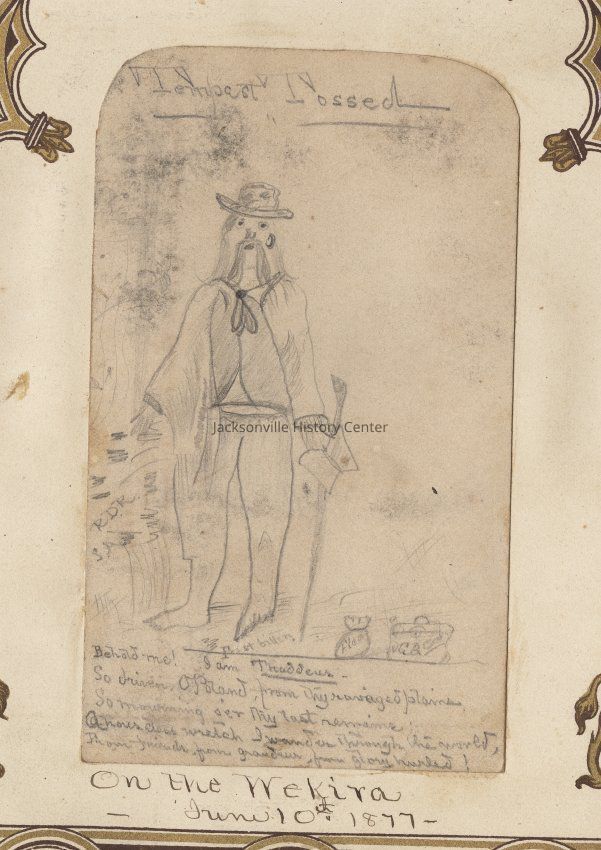 "Tempest Tossed
Jacksonville History Center
RDK
Behold me! I am Thaddeus.
So driven, O Poland from thy ravaged plains,
So mourning o'er thy last remains,
A houseless wretch I wander through the world,
From friends, from grandeur, from glory hurled!
On the Wekiva
June 10th 1877-